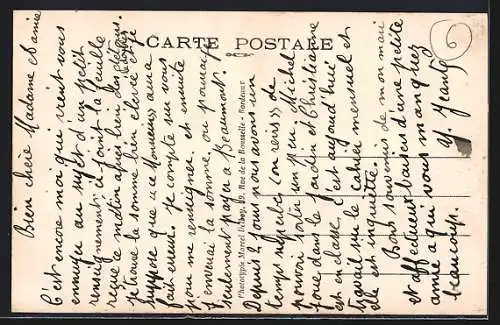 CARTE POSTALE
Bien chère Madame et amie
C'est encore moi qui vient vous
ennuyer au sujet d'un petit
renseignement: à fait la feuille
reçue ce matin après bien des
je trouve la somme bien élevée et je
suppose que ces Messieurs aura
fait erreur. je compte sur vous
pour me renseigner. et ensuite
j'enverrai la somme, ou pourrai
seulement payer à Beaumont.
Phototypie Marcel Delboy, Rue de la Rousselle - Bordeaux
Depuis 2 jours nous avons un
temps superbe (on revis) de
pouvoir sortir un peu. Michel
joue dans le jardin et Christianne
est en classe. c'est aujourd'hui
travail sur le cahier mensuel et
elle est inquiète.
Bons souvenirs de mon mari
et affectueux baisers d'une petite
amie à qui vous manquez
beaucoup. Y. Jean